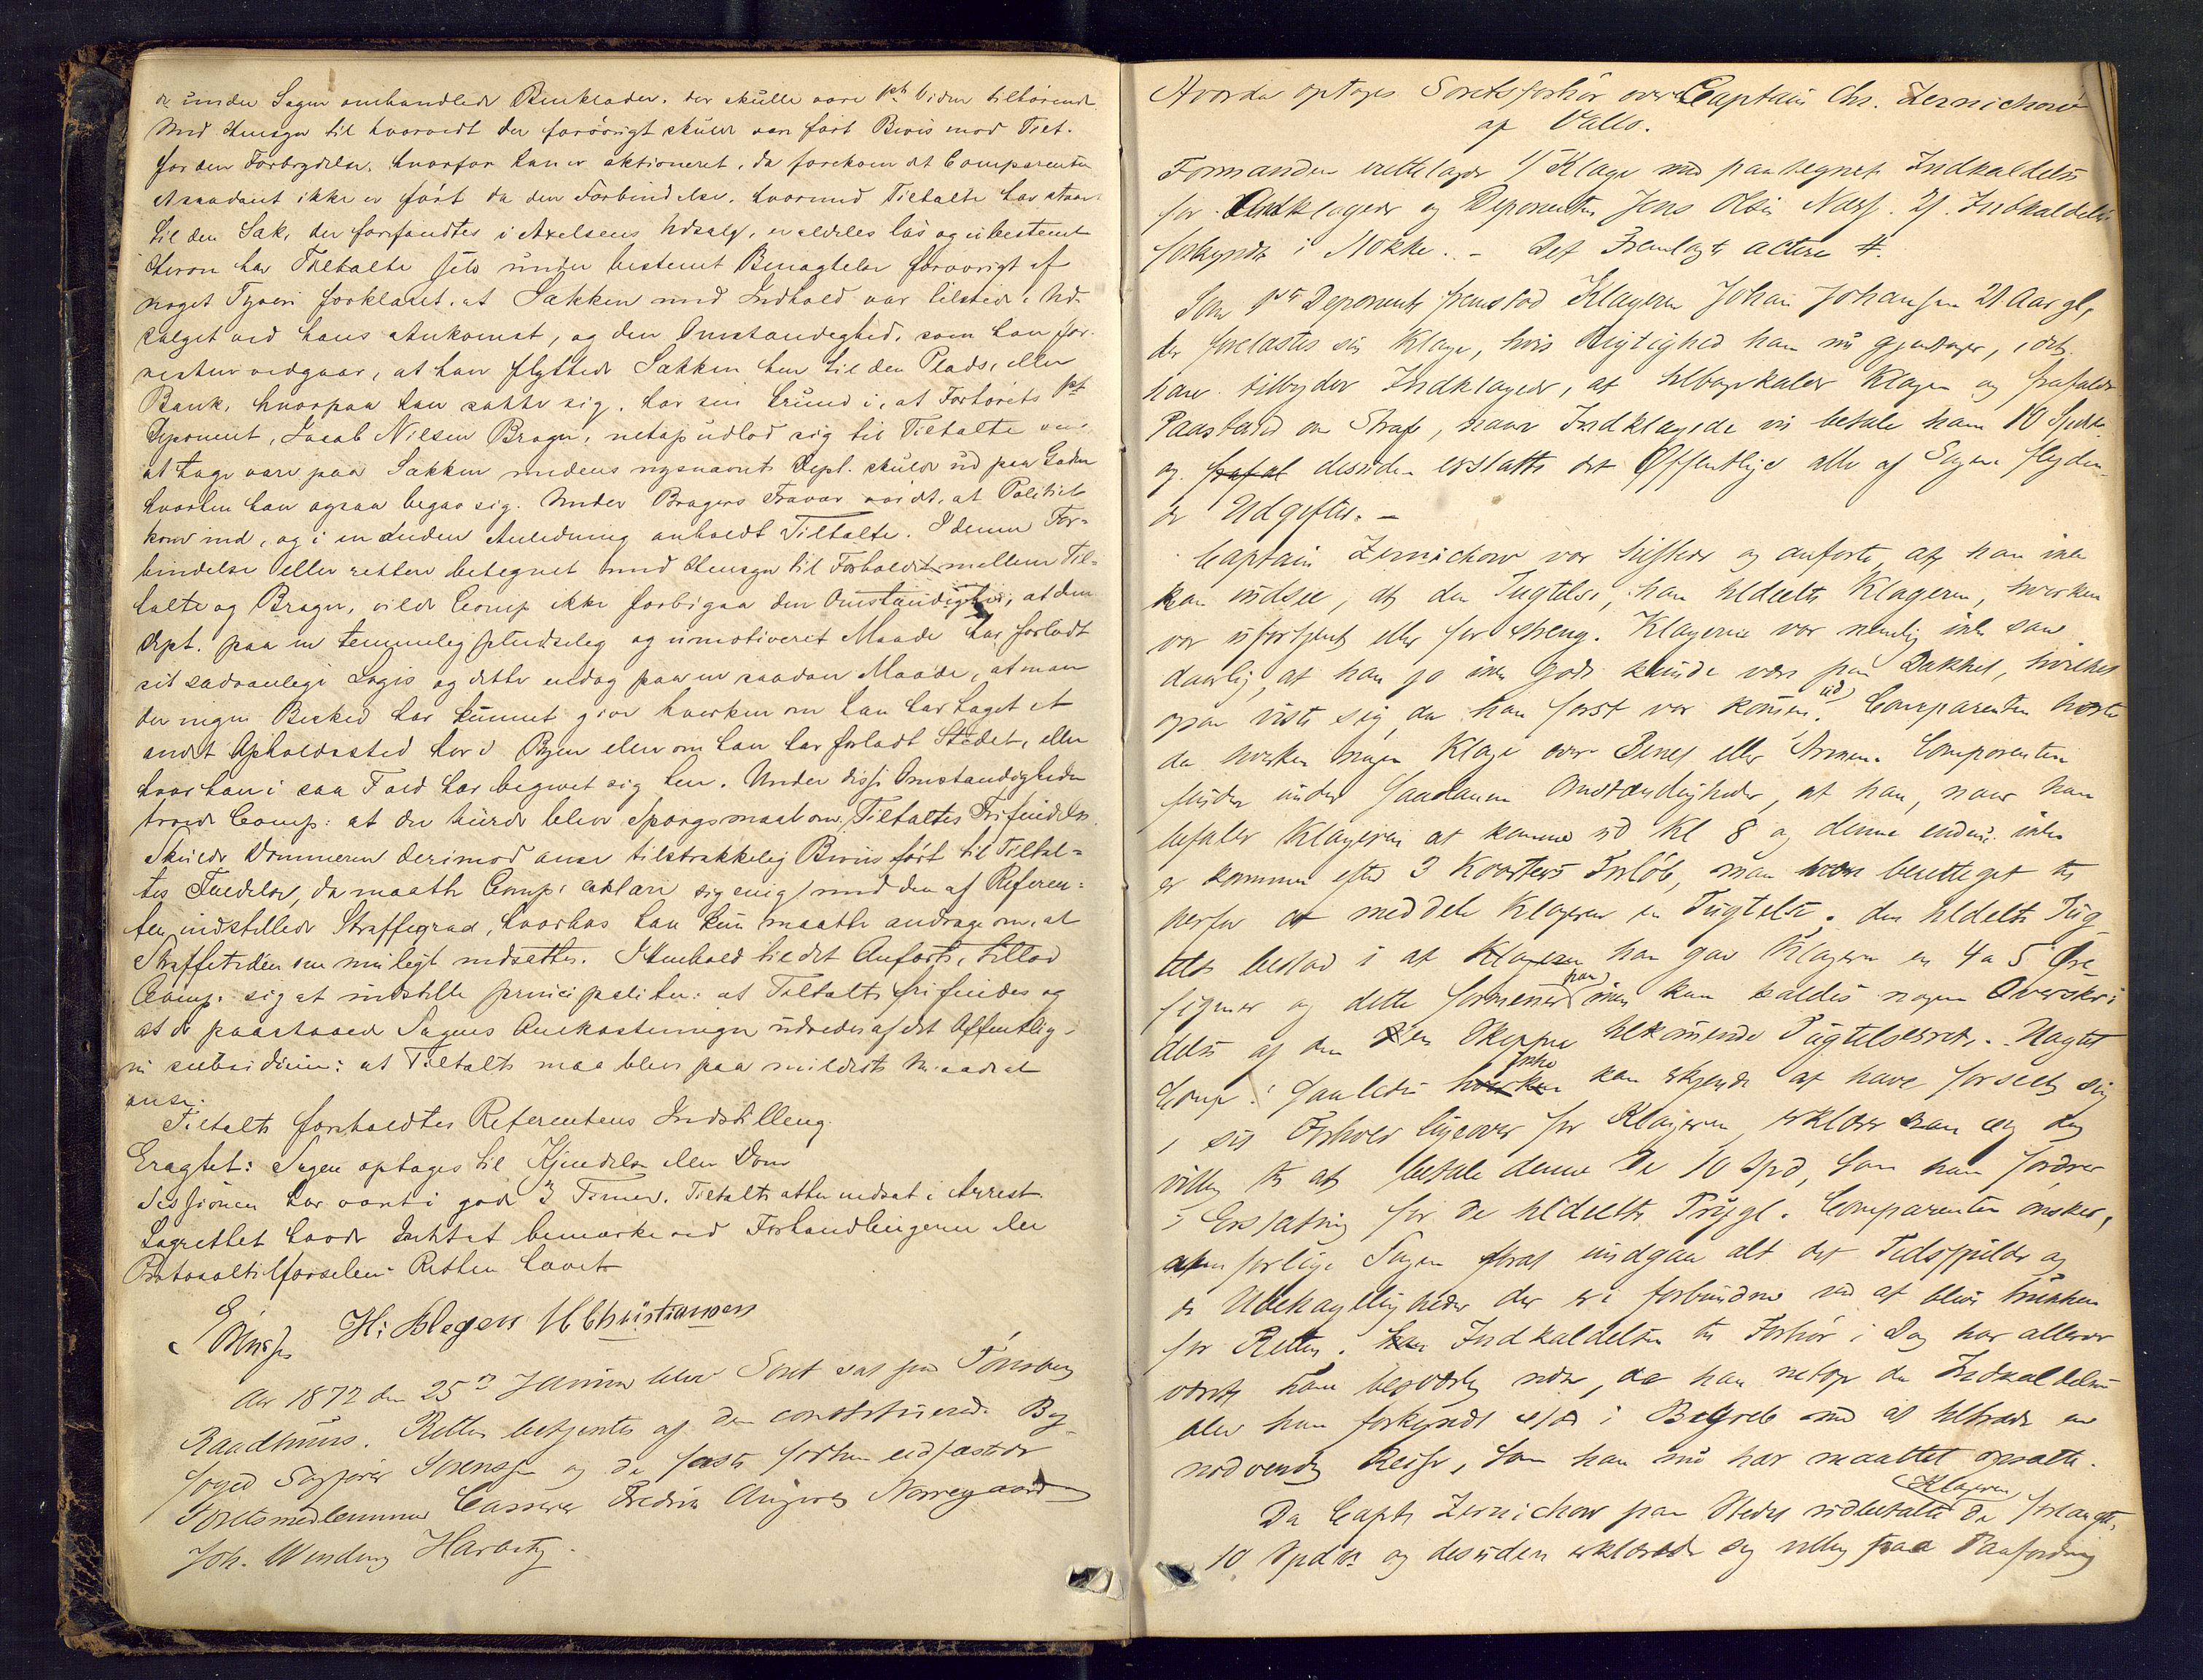 de under Sagen omhandlede Benklæder, der skulle være 1st Vidne tilhørende
Med Hensyn til hvorvidt der forøvrigt skulde være ført Beviis mod Tilt.
for den Forbrydelse, hvorfor han er aktioneret, da forekom det Comparenten
at saadant ikke er ført da den Forbindelse, hvormed Tiltalte har staaet
til den Sæk, der forfandtes i Axelsens Udsalg, er aldeles løs og ubestemt
Herom har Tiltalte selv under bestemt Benægtelse forøvrigt af
noget Tyveri forklaret, at Sækken med Indhold var tilstede i Ud-
salget ved hans Ankomst, og den Omstændighed, som han for-
resten vedgaar, at han flyttede Sækken hen til den Plads, eller
Bænk, hvorpaa han satte sig, har sin Grund i, at Forhørets 1st
Deponent, Jacob Nilsen Brager, netop udlod sig til Tiltalte om
at tage vare paa Sækken medens nysnævnte Dept. skulde ud paa Gaden
hvorhen han ogsaa begav sig. Under Bragers Fravær var det, at Politiet
kom ind, og i en anden Anledning anholdt Tiltalte. I denne For-
bindelse eller rettere betegnet med Hensyn til Forholdet mellem Til-
talte og Brager, vilde Comp ikke forbigaa den Omstændighed, at den
Dept. paa en temmelig pludselig og umotiveret Maade har forladt
sit sædvanlige Logis og dette endog paa en saadan Maade, at man
der ingen Besked har kunnet give hverken om han har taget et
andet Opholdssted her i Byen eller om han har forladt Stedet, eller
hvor han i saa Fald har begivet sig hen. Under disse Omstændigheder
troede Comp: at der burde blive Spørgsmaal om Tiltaltes Frifindelse.
Skulde Dommeren derimod anse tilstrækkelig Beviis ført til Tiltal-
tes Fældelse, da maatte Comp: erklære sig enig med den af Referen-
ten indstillede Straffegrad, hvorhos han kun maatte andrage om, at
Straffetiden om muligt nedsættes. I Henhold til det Anførte, tillod
Comp: sig at indstille principaliter: at Tiltalte frifindes og
at de paastaaede Sagens Omkostninger udredes af det Offentlige
in subsidium: at Tiltalte maa blive paa mildeste Maade at
anse.
Tiltalte foreholdtes Referentens Indstilling.
Eragtet: Sagen optages til Kjendelse eller Dom
Sessionen har varet i godt 3 Timer. Tiltalte atter indsat i Arrest.
Lagrettet havde Intet at bemærke ved Forhandlingerne eller
Protokoltilførselen. Retten hævet
H: Aleger M Christiansen
Aar 1872 den 25de Januar blev Søret sat paa Tønsberg
Raadhuus. Retten betjentes af den constituerede By-
foged Sagfører Sørenssen og de faste forhen eidfæstede
Søretsmedlemmer Casserer Fredrik August Nørregaard
Joh. Wending Harbitz.
Hvorda optoges Søretsforhør over Captain Chr. Zernichow
af Vallø.
Formanden irettelagde 1/ Klage med paategnet Indkaldelse
for Indklagede og Deponenten Jens Olsen Næss. 2/. Indkaldelse
forkyndt i Mokke. – Det Fremlagte acture #.
Som 1ste Deponent fremstod Klageren Johan Johansen 21 Aar gl,
der forelæstes sin Klage, hvis Rigtighed han nu gjentager, idet
han tilbyder Indklagede, at tilbagekalde Klagen og frafalde
Paastand om Straf, naar Indklagede vil betale ham 10 Spdlr.
og frafal desuden erstatte det Offentlige alle af Sagen flyden-
de Udgifter. –
Captain Zernichow var tilstede og anførte at han ikke
kan indsee, at den Tugtelse, han tildeelte Klageren, hverken
var ufortjent eller for streng. Klageren var nemlig ikke saa
daarlig, at han jo ikke godt kunde være paa Dækket, hvilket
ogsaa viste sig, da han først var kommen ud. Comparenten hørte
da hverken nogen Klage over Benet eller Armen. Comparenten
finder under saadanne Omstændigheder, at han, naar han
befaler Klageren at komme ud Kl 8 og denne endnu ikke
er kommen efter 3 Kvarters Forløb, maa være berettiget til
derfor at meddele Klageren en Tugtelse. den tildeelte Tug-
telse bestod i at Klageren han gav Klageren en 4 a 5 Øre-
figener og dette formener han ikke kan kaldes nogen Overskri-
delse af den en Skipper tilkommende Tugtelsesret. Uagtet
Comp: saaledes hverken ikke kan erkjende at have forseet sig
i sit Forhold ligeover for Klageren erklærer han sig dog
villig til at betale denne de 10 Spd, som han fordrer
i Erstatning for de tildeelte Prygl. Comparenten ønsker,
at forlige Sagen forat undgaae alt det Tidsspilde og
de Ubehageligheder der ere forbundne ved at blive trukken
for Retten. Indkaldelsen til Forhør i Dag har allerede
været ham besværlig nok, da han netop da Indkaldelsen
blev ham forkyndt stod i Begreb med at tiltræde en
nødvendig Reise, som han nu har maattet opsætte.
Da Capt Zernichow paa Stedet udbetalte Klageren de forlangte
10 Spdlr. og desuden erklærede sig villig paa Paafordring